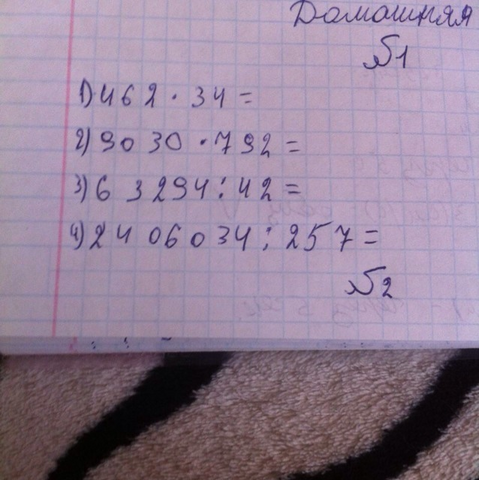 Домашняя
№1
1) 462 · 34 =
2) 9030 · 792 =
3) 63294 : 42 =
4) 2406034 : 257 =
№2